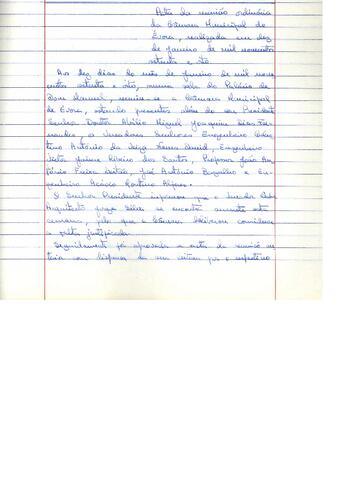 Acta da reunião ordinária
da Câmara Municipal de
Évora, realizada em dez
de Janeiro de mil novecentos
setenta e oito
Aos dez dias do mês de Janeiro de mil nove
centos setenta e oito, numa sala do Palácio de
Dom Manuel, reuniu-se a Câmara Municipal
de Évora, estando presentes, além do seu Presidente
Senhor Doutor Abílio Miguel Joaquim Dias Fer-
nandes, os Vereadores Senhores Engenheiro Celes-
tino António da David, Engenheiro
Víctor Jaime Ribeiro dos Santos, Professor João An-
tónio José António e En-
genheiro Acácio Alferes.
O Senhor Presidente informou que o Vereador Senhor
Arquitecto Jorge Silva se encontra ausente esta
semana, pelo que a Câmara deliberou considerar
a falta justificada.
Seguidamente foi aprovada a acta da reunião an-
terior com dispensa da sua leitura por o respectivo